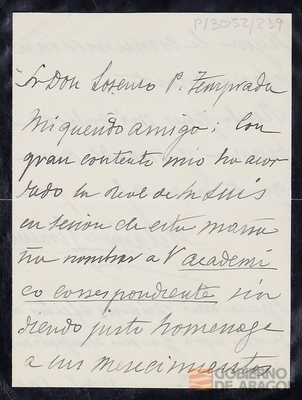 P/3052/239
Sr Don Lorenzo P. Temprado
Mi querido amigo: Con
gran contento mio ha acor
dado la Real de Sn LUIS
en sesion de esta maña
na nombrar a V academi
co correspondiente rin
diendo justo homenage
a sus merecimientos
GOBIERNO
DE ARAGON